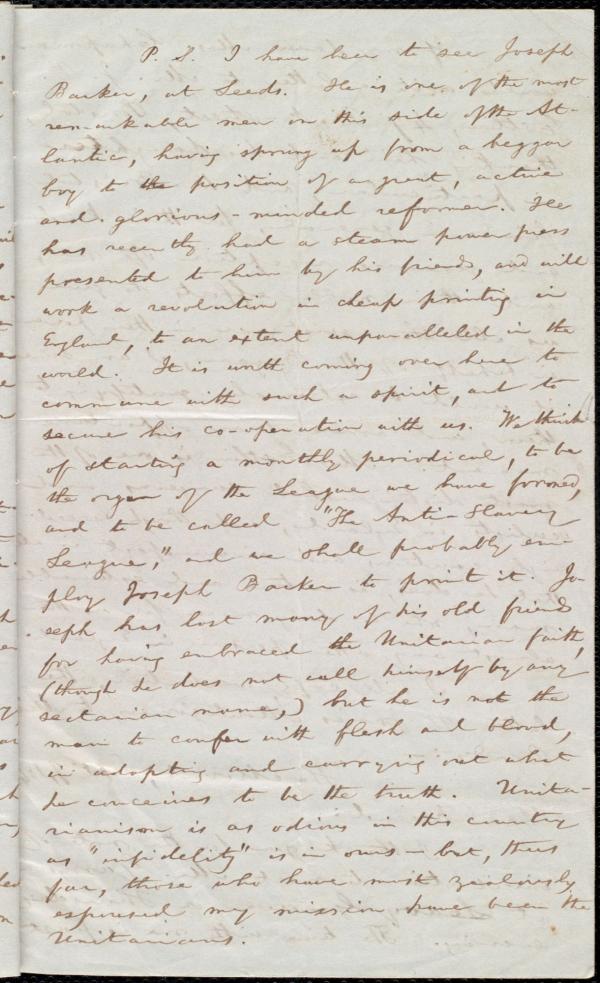 P. S. I have been to see Joseph
Barker, at Leeds. He is one of the most
remarkable men on this side of the At-
lantic, having sprung up from a beggar
boy to the position of a great, active
and glorious-minded reformer. He
has recently had a steam power press
presented to him by his friends, and will
work a revolution in cheap printing in
England, to an extent unparalleled in the
world. It is worth coming over here to
commune with such a spirit, and to
secure his co-operation with us. We think
of starting a monthly periodical, to be
the organ of the League we have formed,
and to be called "The Anti-Slavery
League," and we shall probably em-
ploy Joseph Barker to print it. Jo-
seph has lost many of his old friends
for having embraced the Unitarian faith,
(though he does not call himself by any
sectarian name,) but he is not the
man to confer with flesh and blood,
in adopting and carrying out what
he conceives to be the truth. Unita-
rianism is as odious in this country
as "infidelity" is in ours—but, thus
far, those who have most zealously
espoused my mission have been the
Unitarians.